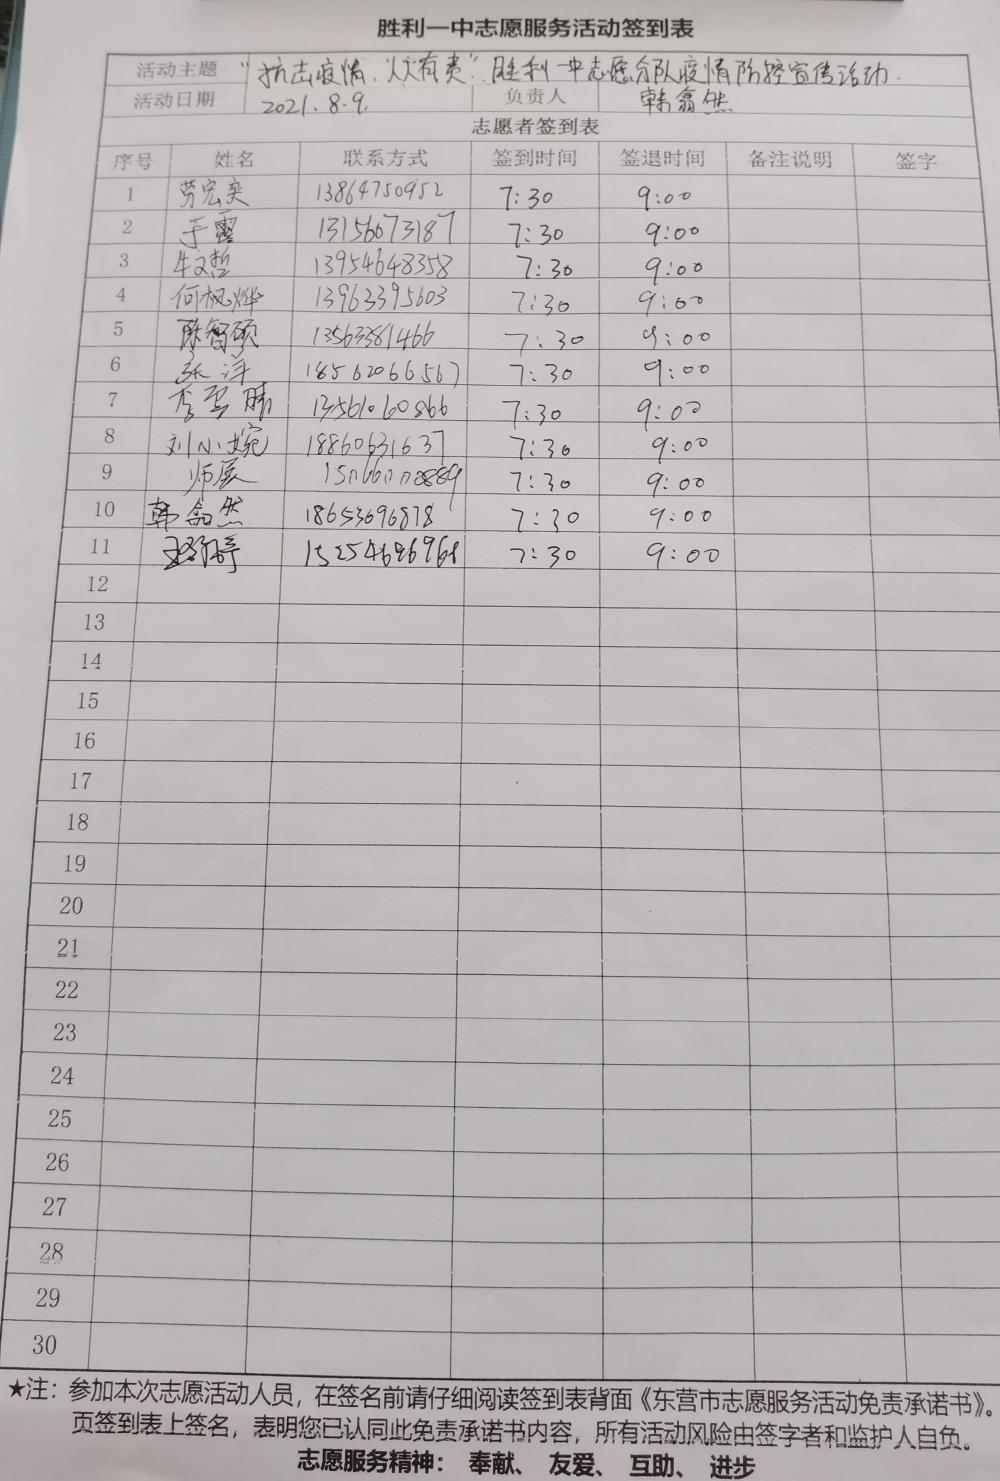 胜利一中志愿服务活动签到表
活动主题 “抗击疫情、人人有责”胜利一中志愿分队疫情防控宣传活动.
活动日期 2021.8.9. 负责人 韩翕然
志愿者签到表
序号 姓名 联系方式 签到时间 签退时间 备注说明 签字
1 劳宏奕 13864750952 7:30 9:00
2 于露 13156673187 7:30 9:00
3 牛文哲 13954648358 7:30 9:00
4 何枫烨 13963395603 7:30 9:00
5 陈智硕 13563381466 7:30 9:00
6 张洋 18562066567 7:30 9:00
7 李雪晴 13561060866 7:30 9:00
8 刘小婉 18860631637 7:30 9:00
9 师展 7:30 9:00
10 韩翕然 18653696878 7:30 9:00
11 7:30 9:00
12
13
14
15
16
17
18
19
20
21
22
23
24
25
26
27
28
29
30
★注：参加本次志愿活动人员，在签名前请仔细阅读签到表背面《东营市志愿服务活动免责承诺书》。
页签到表上签名，表明您已认同此免责承诺书内容，所有活动风险由签字者和监护人自负。
志愿服务精神：奉献、友爱、互助、进步